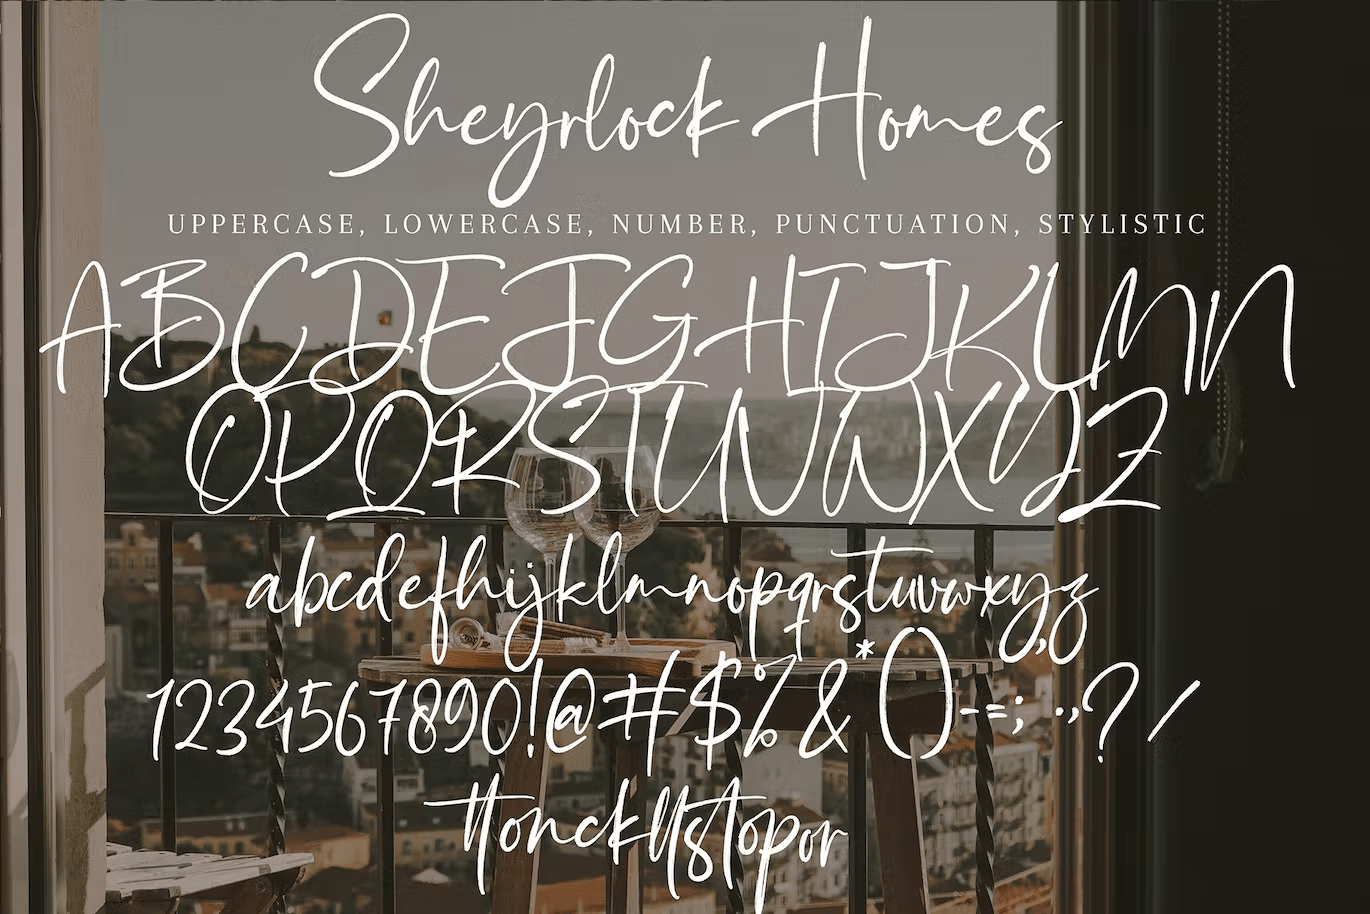 Sheyrlock Homes
UPPERCASE, LOWERCASE, NUMBER, PUNCTUATION, STYLISTIC
ABCDEFGHIJKLMN
OPQRSTUVWXYZ
abcdefhijklmnopqrstuvwxyz
1234567890!@#$%&*()-=;:.,?/